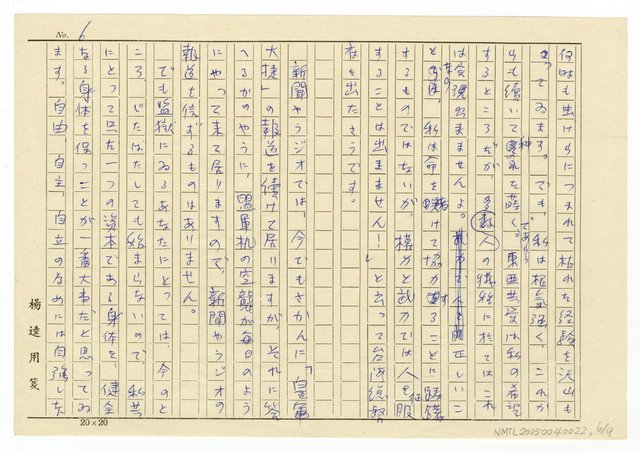 No. 6
何時も虫けらにつままれて枯れた経験を沢山も
もってゐます。でも、私は根気強く、これか
らも続いて種を蒔く。東亜共栄は私の希望
するところだが、多数人の犠牲に於てはこれ
は実現出来ませんよ。正しいこ
となら、私は命を賭けて協力することに躊躇
するものではないが、権力と武力では人を征服
することは出来ません！」と云って台湾総督
府を出たさうです。
新聞やラジオでは、今でもさかんに「皇軍
大捷」の報道を続けて居りますが、それに答
へるかのやうに、盟軍机の空襲が毎日のよう
にやって来て居りますので、新聞やラジオの
報道を信ずるものはありません。
でも監獄にゐるあなたにとっては、今のと
ころ、じたばたしても始まらないので、私共
にとって只一つの資本である身体を、健全
なる身体を保つことが一番大事だと思ってゐ
ます。自由、自主、自立のためには自強した
楊逵用箋
20×20
NMTL20050040022, 6/9